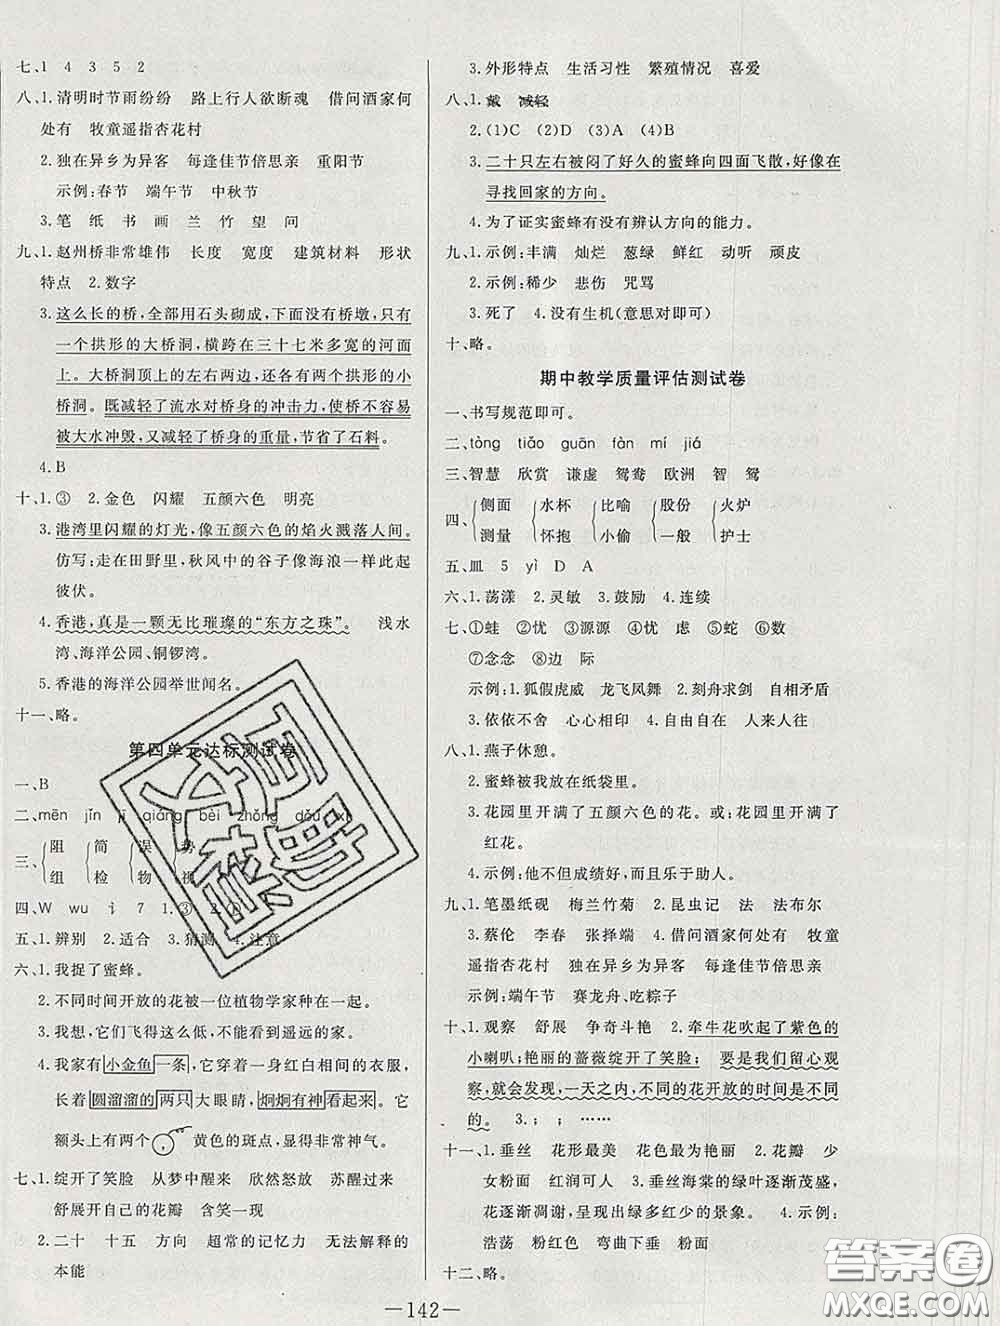 七、1 4 3 5 2
八、1.清明时节雨纷纷 路上行人欲断魂 借问酒家何
处有 牧童遥指杏花村
2.独在异乡为异客 每逢佳节倍思亲 重阳节
示例:春节 端午节 中秋节
3.笔 纸 书 画 兰 竹 望 问
九、1.赵州桥非常雄伟 长度 宽度 建筑材料 形状
特点 2.数字
3.这么长的桥,全部用石头砌成,下面没有桥墩,只有
一个拱形的大桥洞,横跨在三十七米多宽的河面
上。大桥洞顶上的左右两边,还各有两个拱形的小
桥洞。既减轻了流水对桥身的冲击力,使桥不容易
被大水冲毁,又减轻了桥身的重量,节省了石料。
4.B
十、1.③ 2.金色 闪耀 五颜六色 明亮
3.港湾里闪耀的灯光,像五颜六色的焰火溅落人间。
仿写:走在田野里,秋风中的谷子像海浪一样此起
彼伏。
4.香港,真是一颗无比璀璨的“东方之珠”。 浅水
湾、海洋公园、铜锣湾。
5.香港的海洋公园举世闻名。
十一、略。
第四单元达标测试卷
一、B
二、mēn jǐn jì qiáng bèi zhǒng dǒu
三、阻 简 误 势
组 检 物 视
四、W wu i 7 1.③ 2.①
五、1.辨别 2.适合 3.猜测 4.注意
六、1.我捉了蜜蜂。
2.不同时间开放的花被一位植物学家种在一起。
3.我想,它们飞得这么低,不能看到遥远的家。
4.我家有小金鱼一条,它穿着一身红白相间的衣服,
长着圆溜溜的两只大眼睛,炯炯有神看起来。它
额头上有两个 黄色的斑点,显得非常神气。
七、1.绽开了笑脸 从梦中醒来 欣然怒放 苏醒过来
舒展开自己的花瓣 含笑一现
2.二十 十五 方向 超常的记忆力 无法解释的
本能
3.外形特点 生活习性 繁殖情况 喜爱
八、1.戴 减轻
2.(1)C (2)D (3)A (4)B
3.二十只左右被闷了好久的蜜蜂向四面飞散,好像在
寻找回家的方向。
4.为了证实蜜蜂有没有辨认方向的能力。
九、1.示例:丰满 灿烂 葱绿 鲜红 动听 顽皮
2.示例:稀少 悲伤 咒骂
3.死了 4.没有生机(意思对即可)
十、略。
期中教学质量评估测试卷
一、书写规范即可。
二、tòng tiǎo guān fàn mí jiá
三、智慧 欣赏 谦虚 鸳鸯 欧洲 智 鸳
四、侧面 水杯 比喻 股份 火炉
测量 怀抱 小偷 一般 护士
五、皿 5 yì D A
六、1.荡漾 2.灵敏 3.鼓励 4.连续
七、①蛙 ②忧 ③源源 ④忧 虑 ⑤蛇 ⑥数
⑦念念 ⑧边 际
示例:1.狐假虎威 龙飞凤舞 2.刻舟求剑 自相矛盾
3.依依不舍 心心相印 4.自由自在 人来人往
八、1.燕子休憩。
2.蜜蜂被我放在纸袋里。
3.花园里开满了五颜六色的花。或:花园里开满了
红花。
4.示例:他不但成绩好,而且乐于助人。
九、1.笔墨纸砚 梅兰竹菊 2.昆虫记 法 法布尔
3.蔡伦 李春 张择端 4.借问酒家何处有 牧童
遥指杏花村 独在异乡为异客 每逢佳节倍思亲
示例:端午节 赛龙舟、吃粽子
十、1.观察 舒展 争奇斗艳 2.牵牛花吹起了紫色的
小喇叭;艳丽的蔷薇绽开了笑脸; 要是我们留心观
察,就会发现,一天之内,不同的花开放的时间是不同
的。 3.; ; ……
十一、1.垂丝 花形最美 花色最美 2.花瓣 少
女粉面 红润可人 3.垂丝海棠的绿叶逐渐茂盛,
花逐渐凋谢,呈现绿多红少的景象。 4.示例:
浩荡 粉红色 弯曲下垂 粉面
十二、略。
—142—
答案圈
MXQE.COM